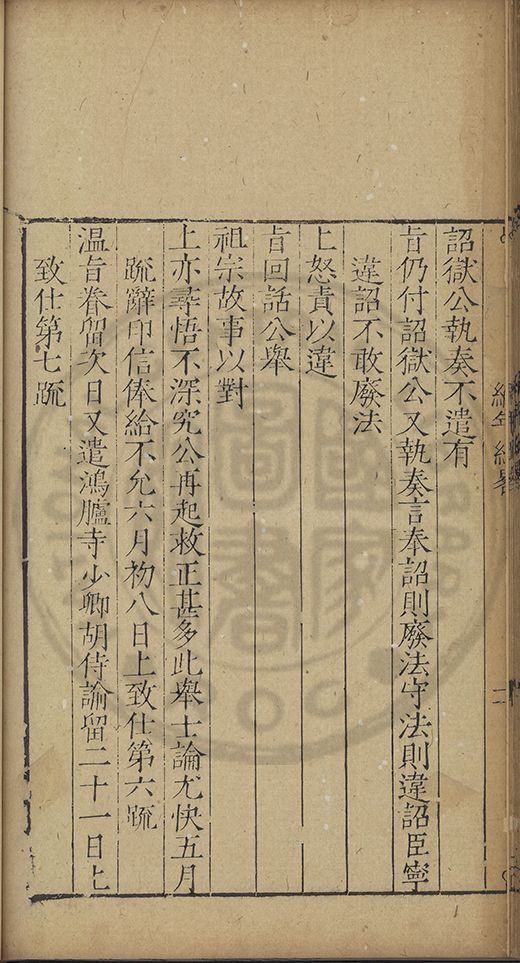 詔獄公執奏不遣有
旨仍付詔獄公又執奏言奉詔則廢法守法則違詔臣寧
違詔不敢廢法
上怒責以違
旨回話公舉
祖宗故事以對
上亦尋悟不深究公再起救正甚多此舉士論尤快五月
疏辭印信俸給不允六月初八日上致仕第六疏
温旨眷留次日又遣鴻臚寺少卿胡侍諭留二十一日上
致仕第七疏